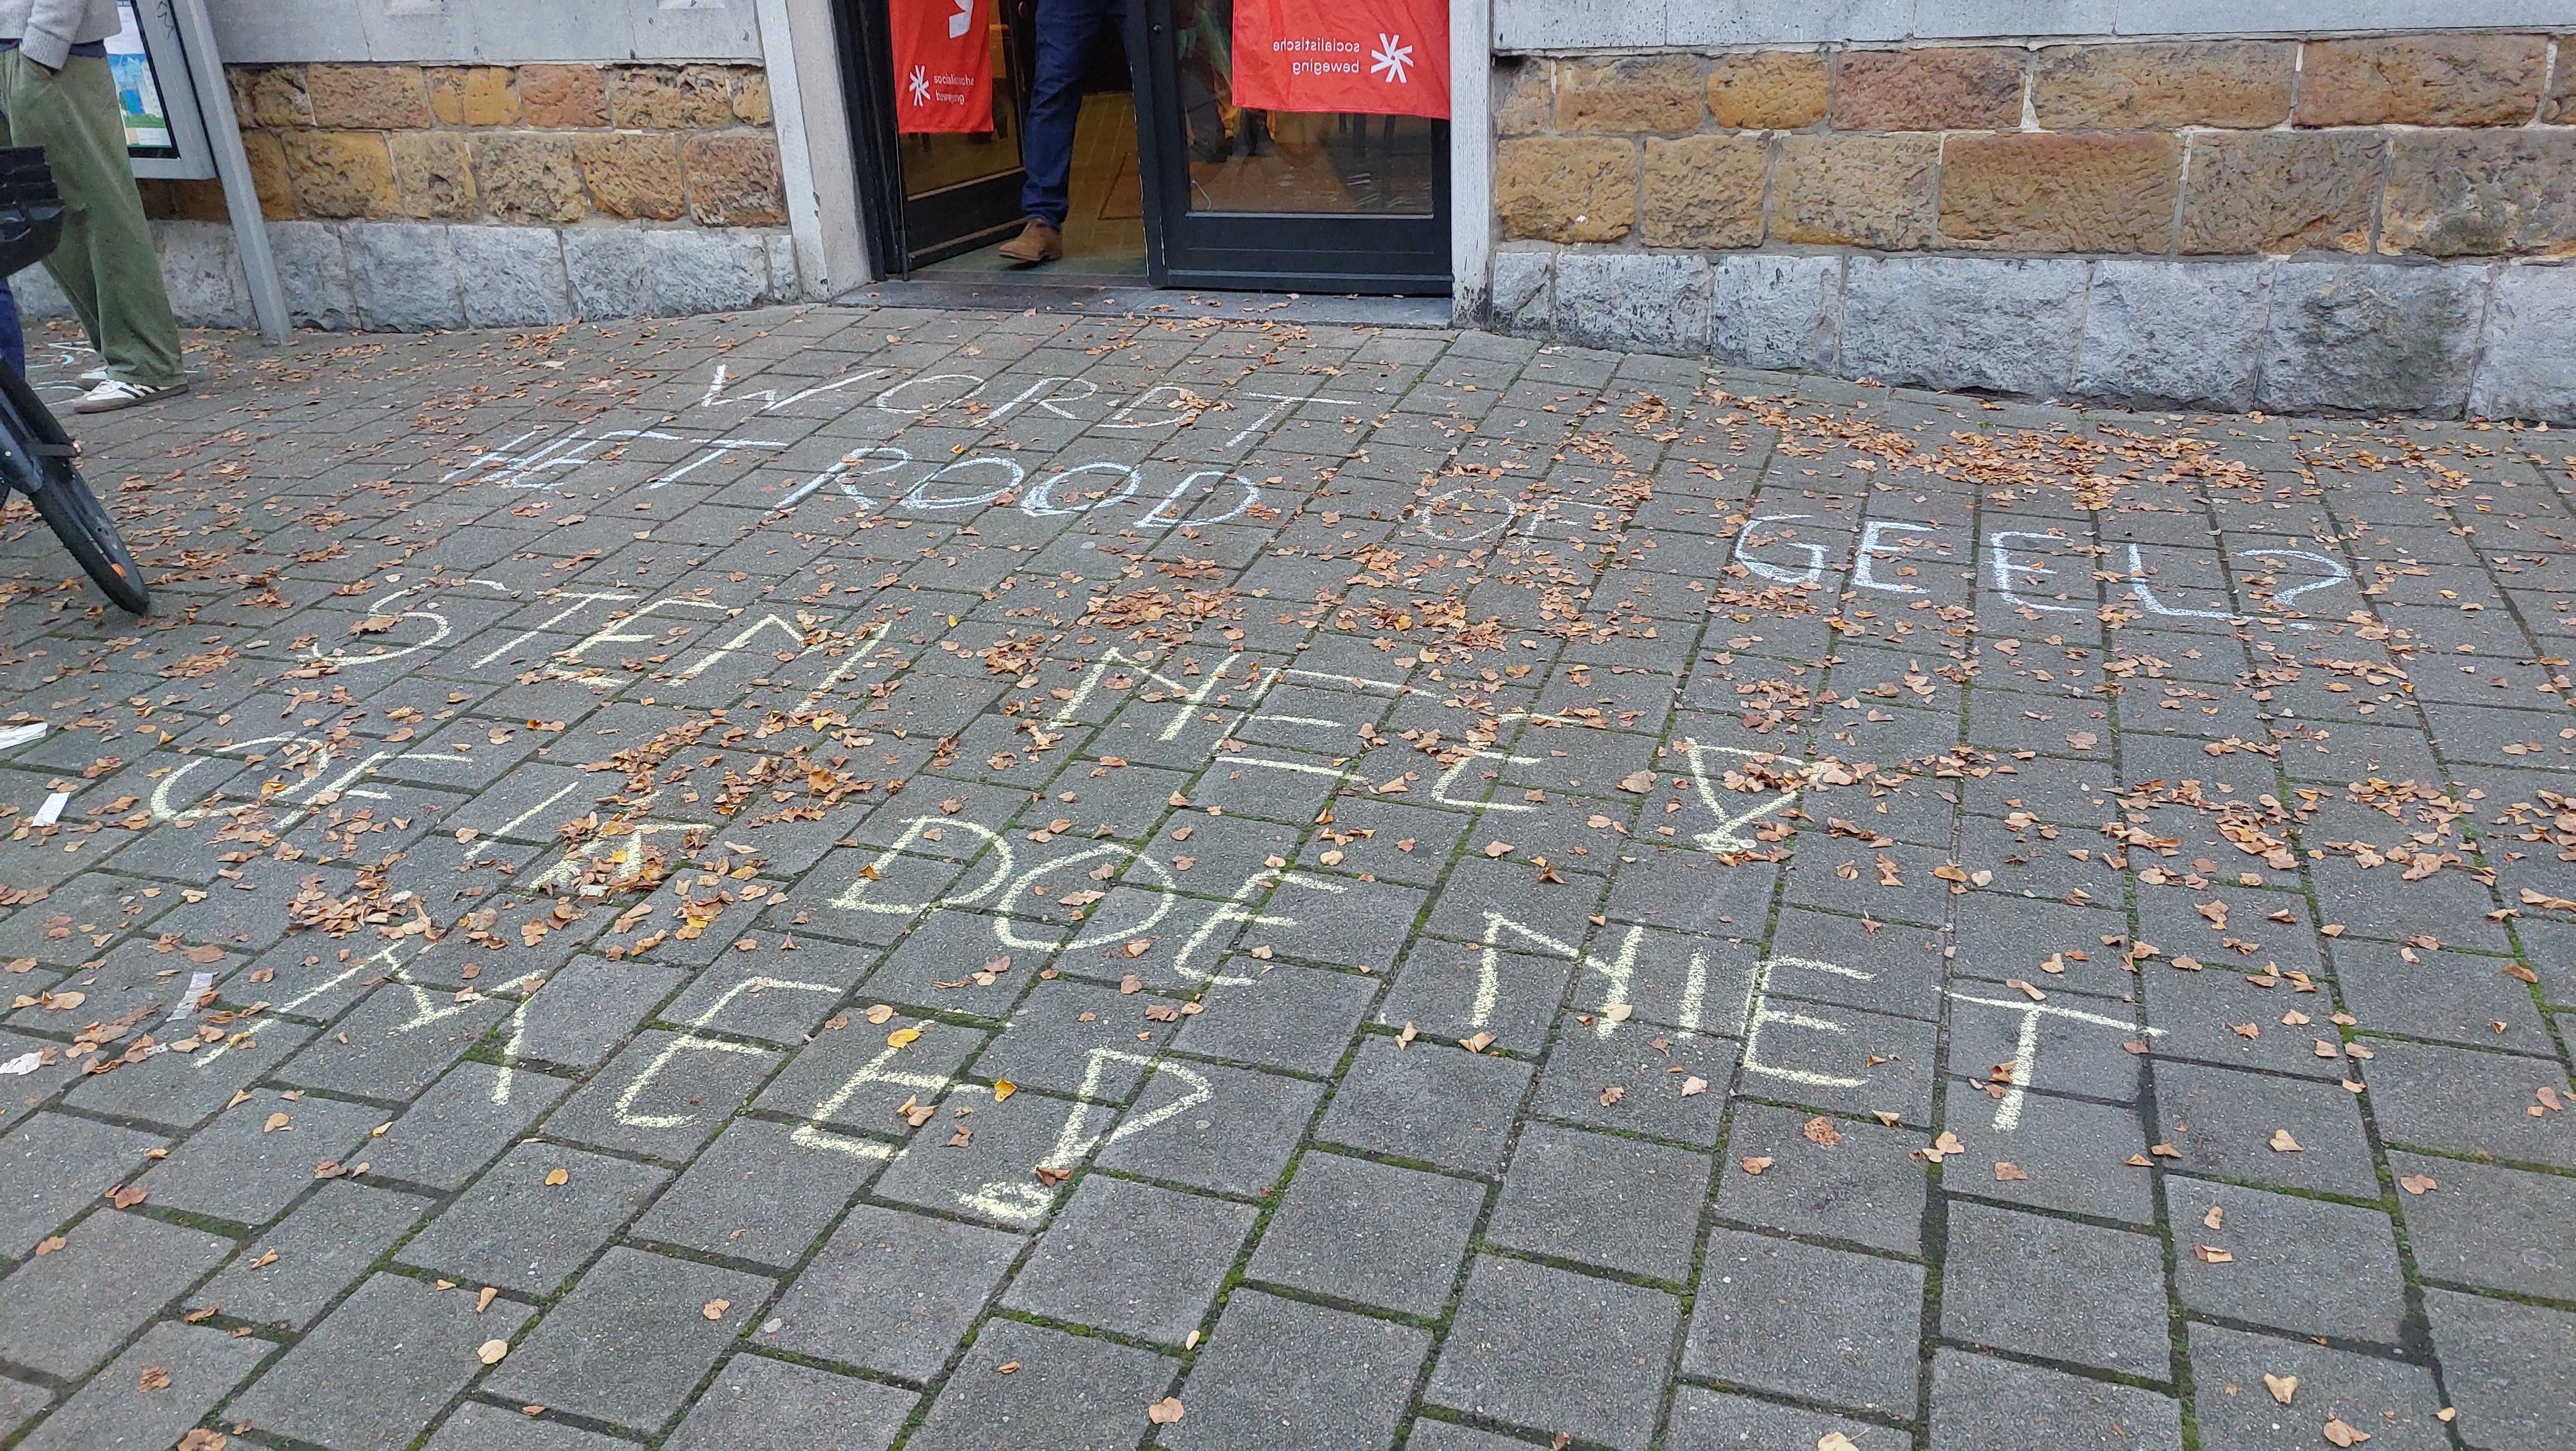 socialistische
beweging
socialistische
beweging
WORDT
HET ROOD OF GEEL?
STEM NEE!
OF IK DOE NIET
MEER